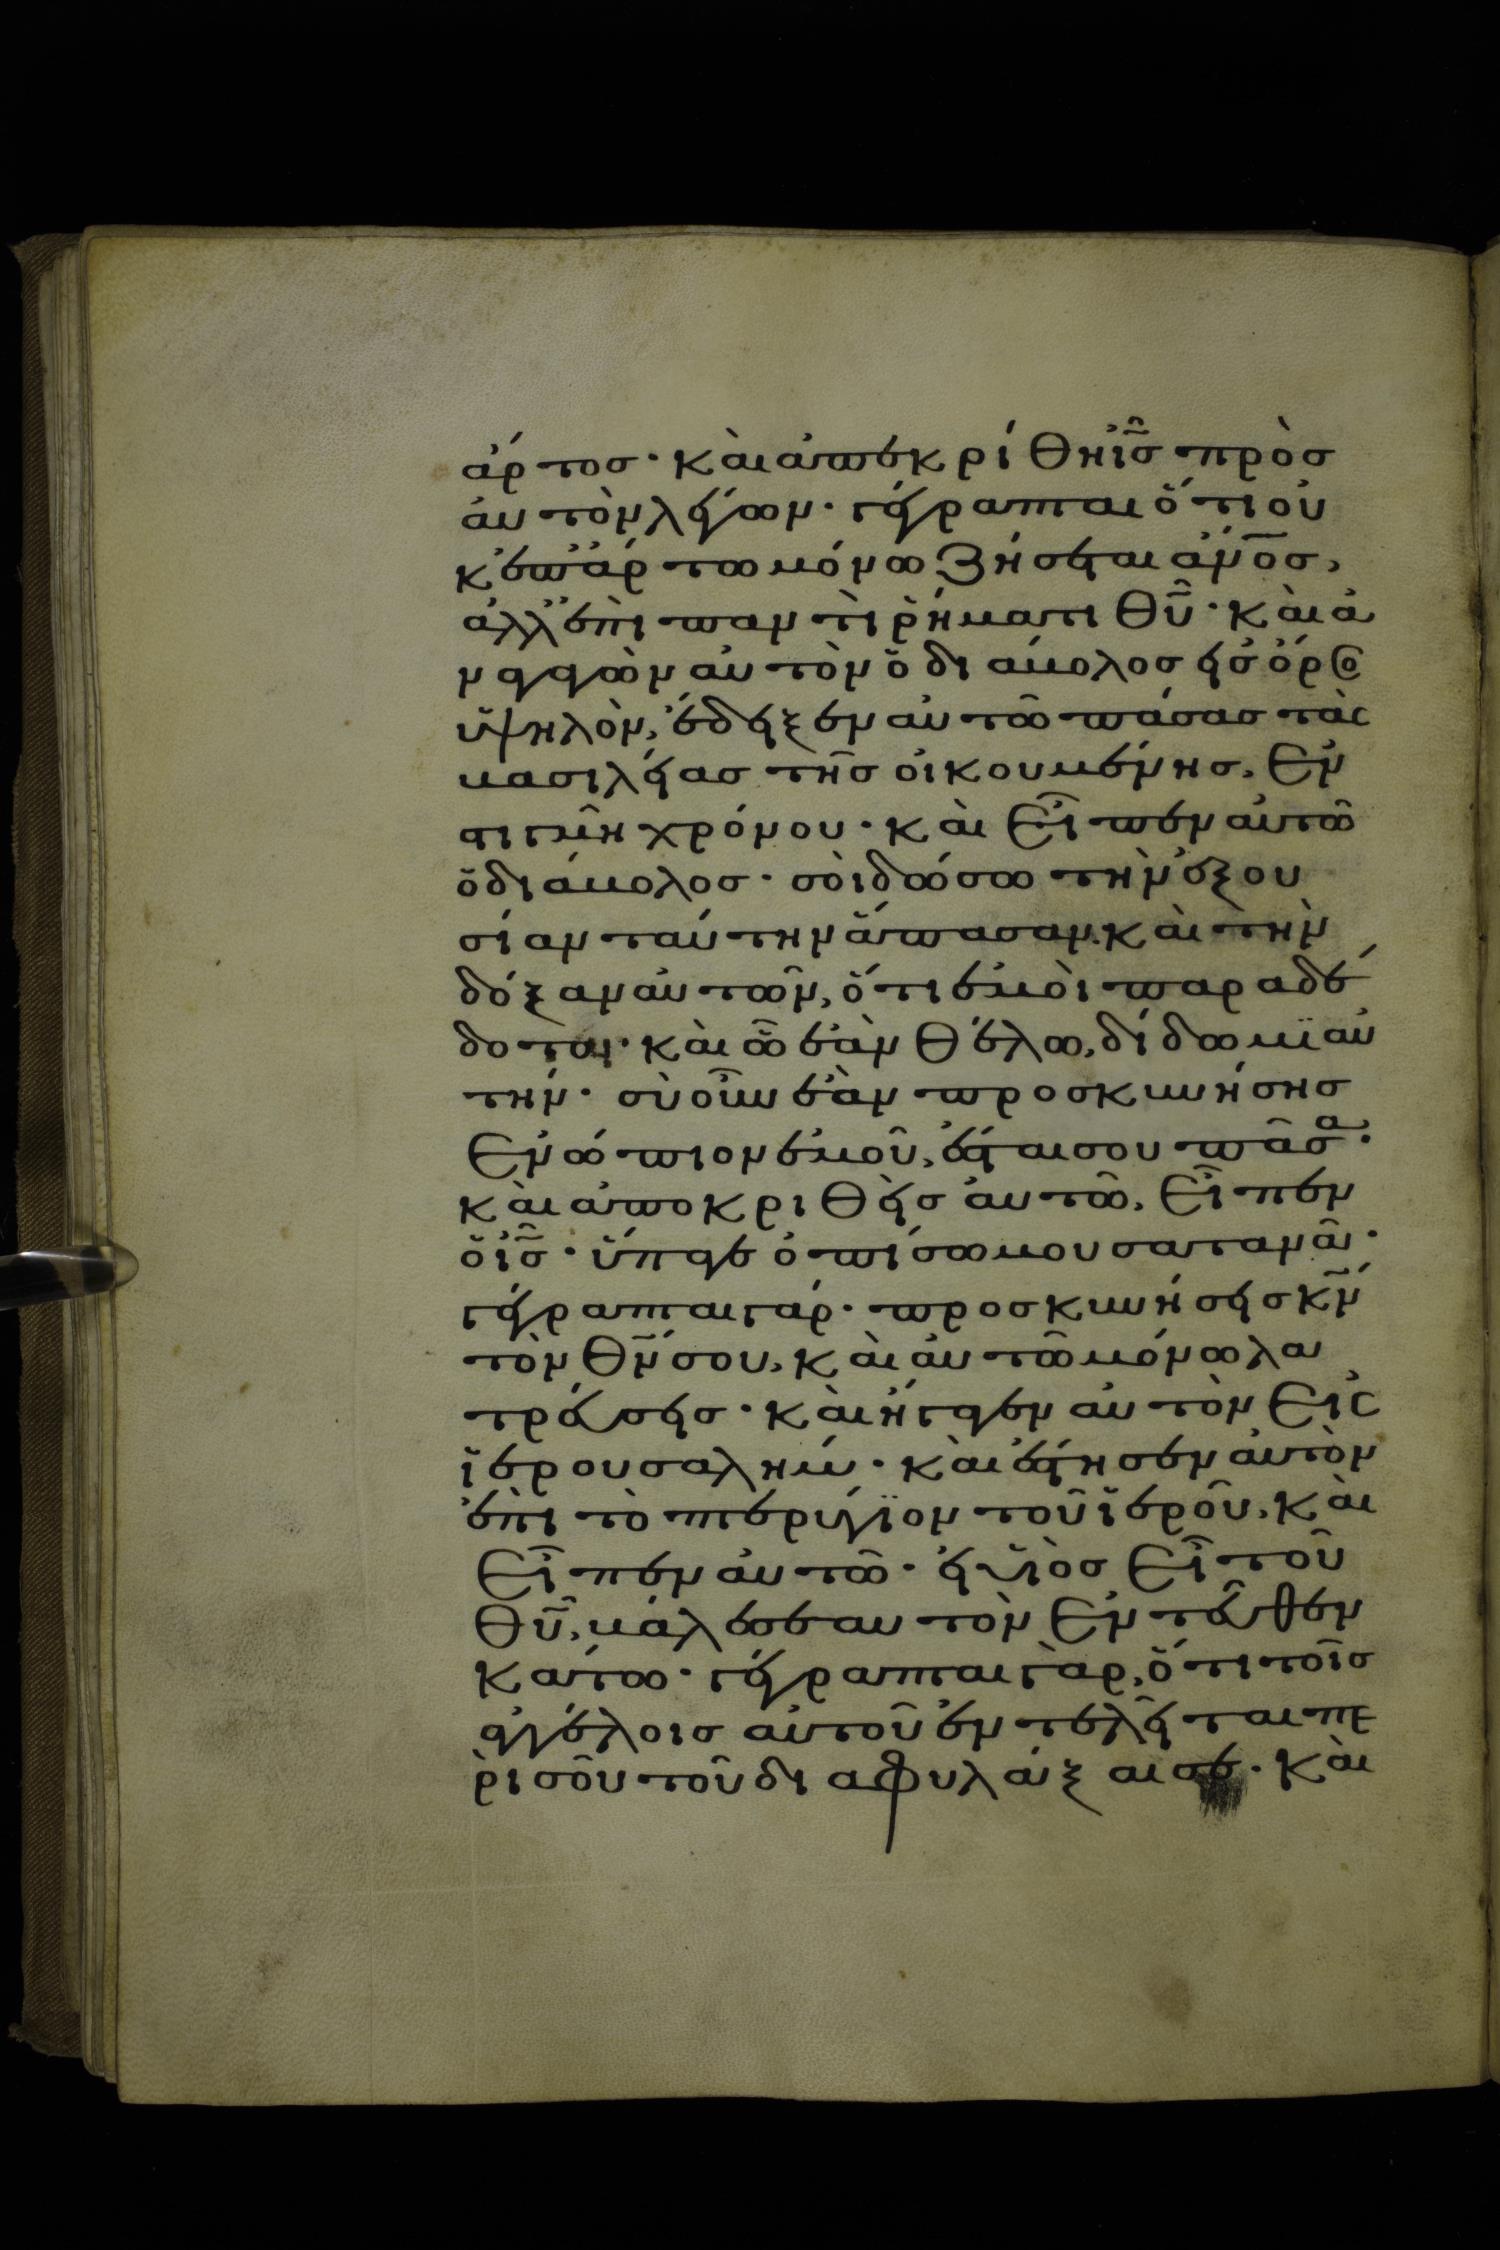 ἄρτοσ· καὶ ἀπεκρίθη ἰ̅σ̅ πρὸσ
ἀυτὸν λέγων· γέγραπται ὅτι οὐ
κ ἐπ ἄρτω μόνω ζήσεται ἄν̅ο̅σ̅,
ἀλλ ἐπι παντὶ ῥήματι θ̅υ̅· καὶ ἀ
ναγαγὼν αὐτὸν ὁ διάβολοσ εἰσ ὄροσ
ὑψηλὸν, ἔδειξεν αὐτῶ πάσασ τὰσ
βασιλείασ τῆσ οἰκουμένησ, ἐν
στιγμῆ χρόνου· καὶ εἶπεν αὐτῶ
ὁ διάβολοσ· σοὶ δώσω τὴν ἐξου
σίαν ταύτην ἅπασαν. καὶ τὴν
δόξαν αὐτῶν, ὅτι ἐμοὶ παραδέ
δοται· καὶ ὧ ἐὰν θέλω, δίδωμϊ αὐ
τήν· σὺ οὖν ἐὰν προσκυνήσησ
ἐνώπιον ἐμοῦ, ἔσται σου πᾶσα·
καὶ ἀποκριθεὶσ ἀυτῶ, εἶπεν
ὁ ἰ̅σ̅· ὕπαγε ὀπίσω μου σατανᾶ·
γέγραπται γάρ· προσκυνήσεισ κ̅ν̅
τὸν θ̅ν̅ σου, καὶ ἀυτῶ μόνω λα
τρεύσεισ· καὶ ἤγαγεν αὐτὸν εἰσ
ἱερουσαλήμ· καὶ ἔστησεν ἀυτὸν
ἐπι τὸ πτερύγϊον τοῦ ἱεροῦ, καὶ
εἶπεν ἀυτῶ· εἰ υἱὸσ εἶ τοῦ
θ̅υ̅, βάλε σεαυτὸν ἐντεῦθεν
κατω· γέγραπται γὰρ, ὅτι τοῖσ
ἀγγέλοισ αὐτοῦ ἐντελεῖται πε
ρὶ σοῦ τοῦ διαφυλάξαι σε· καὶ